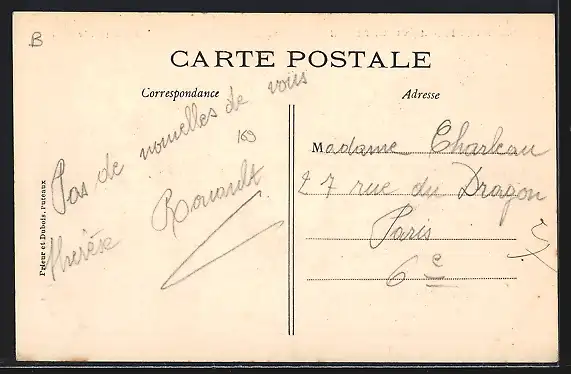 B
CARTE POSTALE
Correspondance
Adresse
Pas de nouvelles de vous
169
Therèse Rouault
Madame Charleau
27 rue du Dragon
Paris
6e
Prieur et Dubois, Puteaux